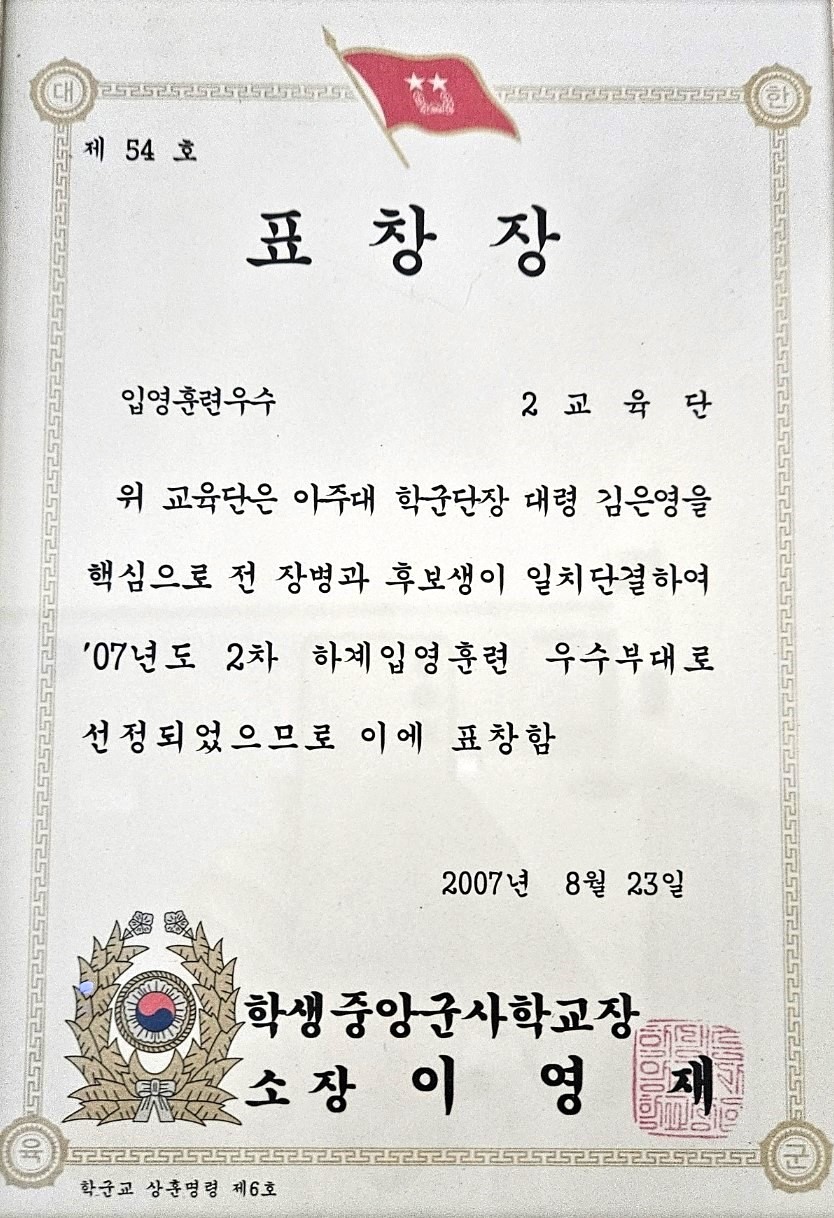 대 한
제 54 호
표 창 장
입영훈련우수 2 교 육 단
위 교육단은 아주대 학군단장 대령 김은영을
핵심으로 전 장병과 후보생이 일치단결하여
'07년도 2차 하계입영훈련 우수부대로
선정되었으므로 이에 표창함
2007년 8월 23일
학생중앙군사학교장
소 장 이 영 재
육 군
학군교 상훈명령 제6호